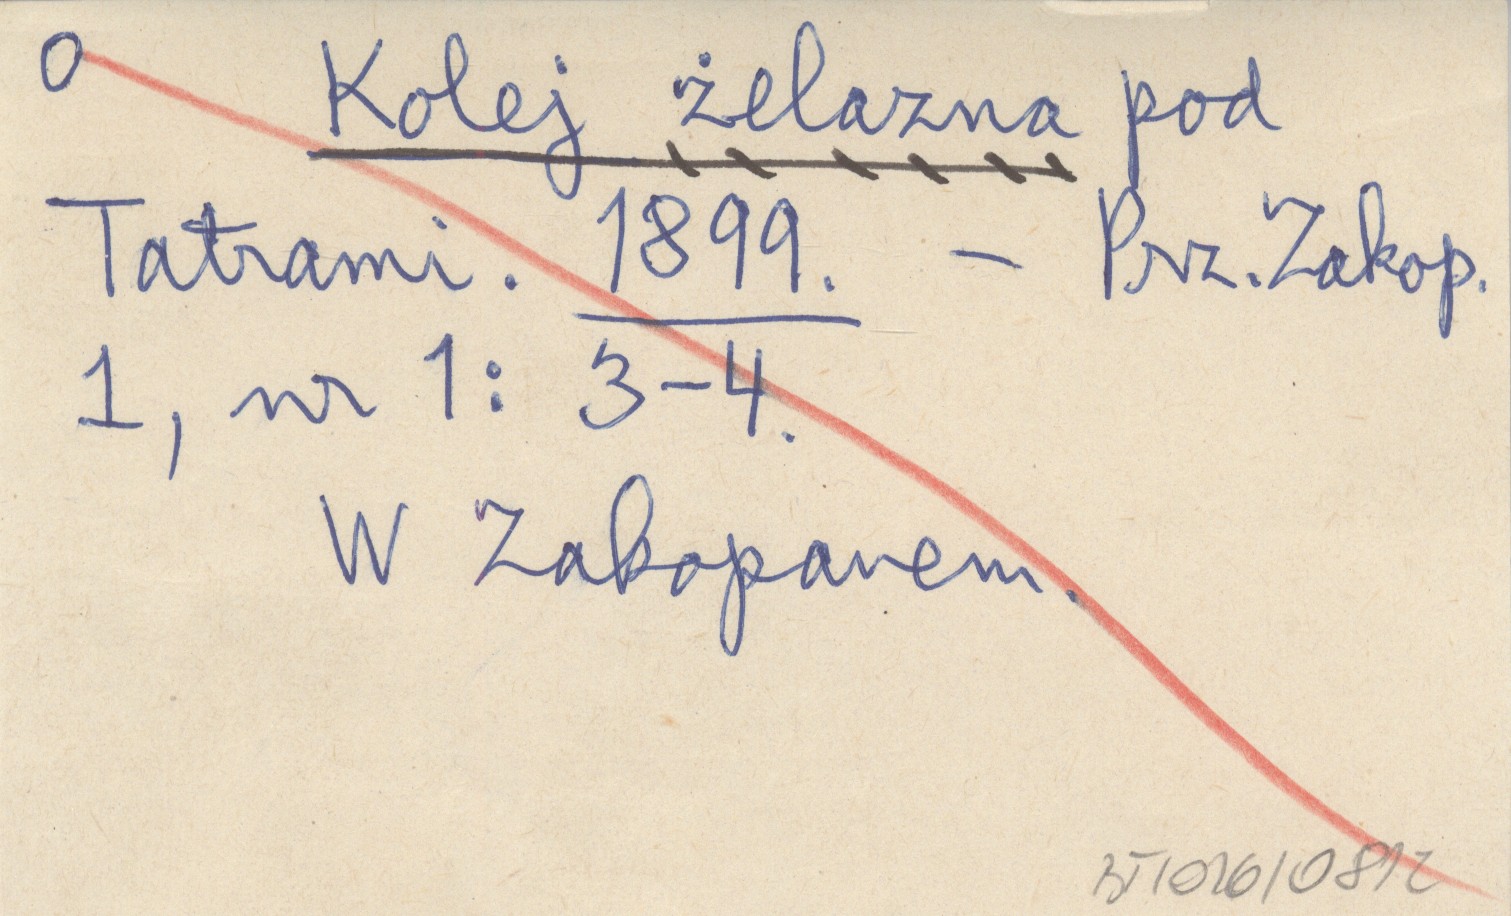 O
Kolej żelazna pod
Tatrami. 1899. – Prz. Zakop.
1, nr 1: 3-4.
W Zakopanem.
BT/026/0812